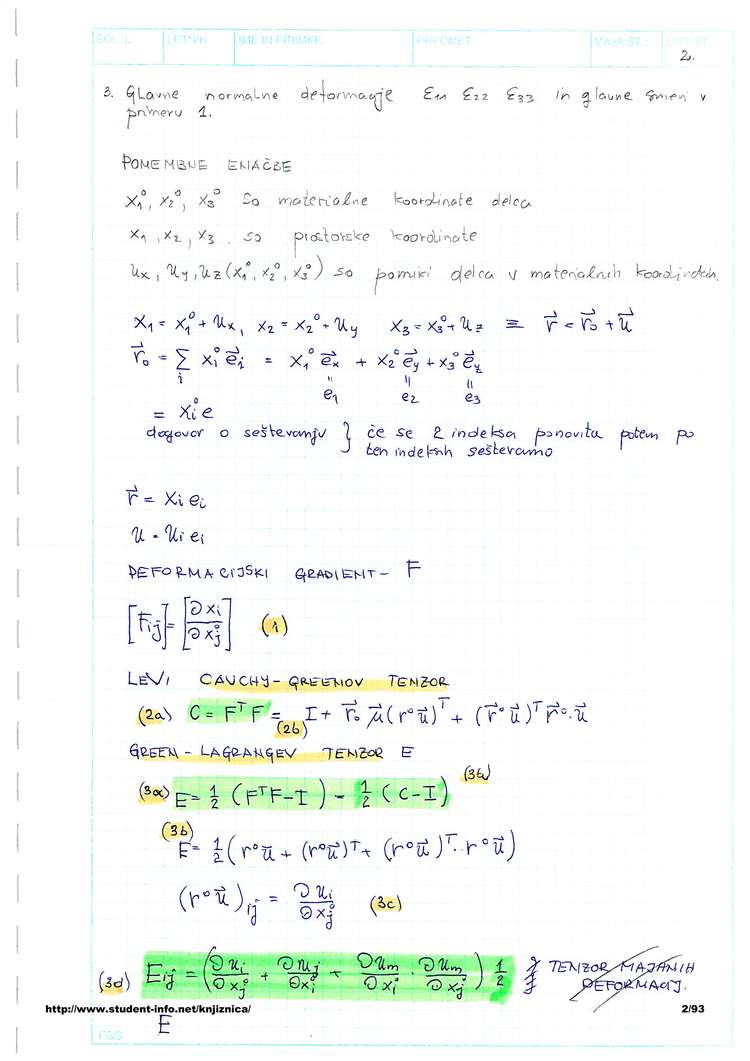 ŠOL. L. LETNIK IME IN PRIIMEK PREDMET VAJA ŠT.: LIST ŠT.
2.
3. Glavne normalne deformacije ε11 ε22 ε33 in glavne smeri v
primeru 1.
POMEMBNE ENAČBE
x1°, x2°, x3° so materialne koordinate delca
x1, x2, x3. so prostorske koordinate
ux, uy, uz (x1°, x2°, x3°) so pomiki delca v materialnih koordinatah.
x1 = x1° + ux, x2 = x2° + uy x3 = x3° + uz ≡ r⃗ = r⃗0 + u⃗
r⃗0 = Σ xi° e⃗i = x1° e⃗x + x2° e⃗y + x3° e⃗z
i " " "
e1 e2 e3
= xi° e
dogovor o seštevanju } če se 2 indeksa ponovita potem po
ten indeksih seštevamo
r⃗ = xi ei
u = ui ei
DEFORMACIJSKI GRADIENT - F
[Fij] = [∂xi / ∂xj°] (1)
LEVI CAUCHY-GREENOV TENZOR
(2a) C = F^T F = (2b) I + r⃗0 u⃗ (r° u⃗)^T + (r⃗° u⃗)^T r⃗°. u⃗
GREEN-LAGRANGEV TENZOR E
(3a) E = 1/2 (F^T F - I) = 1/2 (C - I) (3b)
(3b)
E = 1/2 (r° u⃗ + (r° u⃗)^T + (r° u⃗)^T. r° u⃗)
(r° u⃗)ij = ∂ui / ∂xj° (3c)
(3d) Eij = (∂ui / ∂xj° + ∂uj / ∂xi° + ∂um / ∂xi° · ∂um / ∂xj°) 1/2 } TENZOR MAJHNIH
DEFORMACIJ.
http://www.student-info.net/knjiznica/ 2/93
E
FGG